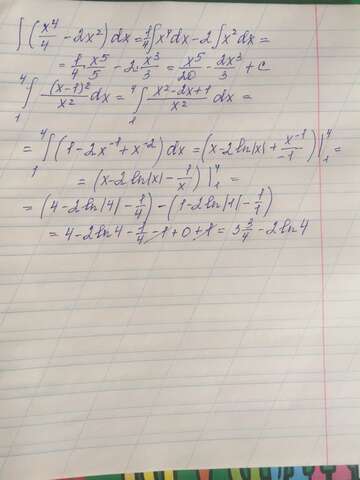 ∫(x⁴/4 − 2x²)dx = 1/4∫x⁴dx − 2∫x²dx =
= 1/4 · x⁵/5 − 2 · x³/3 = x⁵/20 − 2x³/3 + C
₁⁴∫ (x−1)²/x² dx = ₁⁴∫ x²−2x+1/x² dx =
= ₁⁴∫(1 − 2x⁻¹ + x⁻²)dx = (x − 2ln|x| + x⁻¹/−1)|₁⁴ =
= (x − 2ln|x| − 1/x)|₁⁴ =
= (4 − 2ln|4| − 1/4) − (1 − 2ln|1| − 1/1)
= 4 − 2ln4 − 1/4 − 1 + 0 + 1 = 3 3/4 − 2ln4